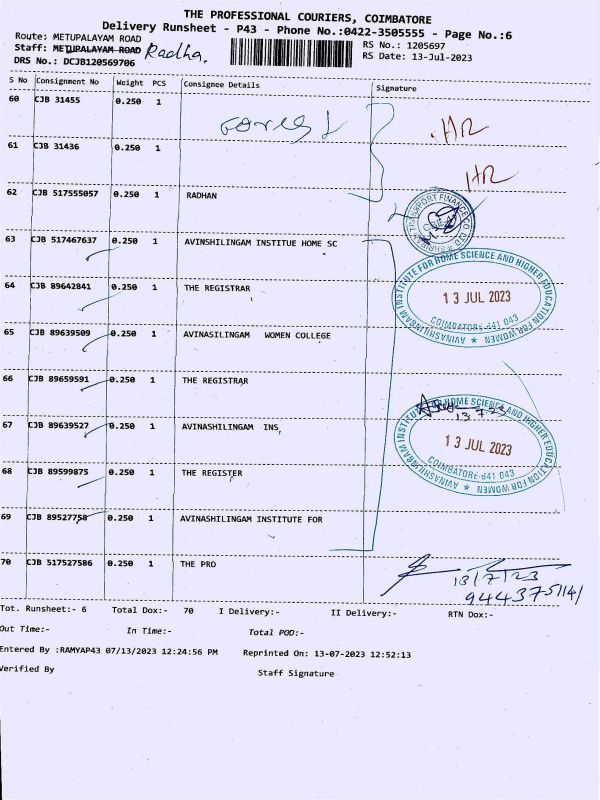 THE PROFESSIONAL COURIERS, COIMBATORE
Delivery Runsheet - P43 - Phone No.:0422-3505555 - Page No.:6
Route: METUPALAYAM ROAD
RS No.: 1205697
Staff: METUPALAYAM ROAD Radha.
RS Date: 13-Jul-2023
DRS No.: DCJB120569706
S No Consignment No Weight PCS Consignee Details Signature
60 CJB 31455 0.250 1
HR
61 CJB 31436 0.250 1
HR
62 CJB 517555057 0.250 1 RADHAN
63 CJB 517467637 0.250 1 AVINSHILINGAM INSTITUE HOME SC
64 CJB 89642841 0.250 1 THE REGISTRAR
AVINASHILINGAM INSTITUTE FOR HOME SCIENCE AND HIGHER EDUCATION FOR WOMEN
13 JUL 2023
COIMBATORE-641 043
65 CJB 89639509 0.250 1 AVINASILINGAM WOMEN COLLEGE
66 CJB 89659591 0.250 1 THE REGISTRAR
13 7 23
67 CJB 89639527 0.250 1 AVINASHILINGAM INS,
AVINASHILINGAM INSTITUTE FOR HOME SCIENCE AND HIGHER EDUCATION FOR WOMEN
13 JUL 2023
COIMBATORE-641 043
68 CJB 89599875 0.250 1 THE REGISTER
69 CJB 89527758 0.250 1 AVINASHILINGAM INSTITUTE FOR
70 CJB 517527586 0.250 1 THE PRO
13/7/23
9443751141
Tot. Runsheet:- 6 Total Dox:- 70 I Delivery:- II Delivery:- RTN Dox:-
Out Time:- In Time:- Total POD:-
Entered By :RAMYAP43 07/13/2023 12:24:56 PM Reprinted On: 13-07-2023 12:52:13
Verified By Staff Signature